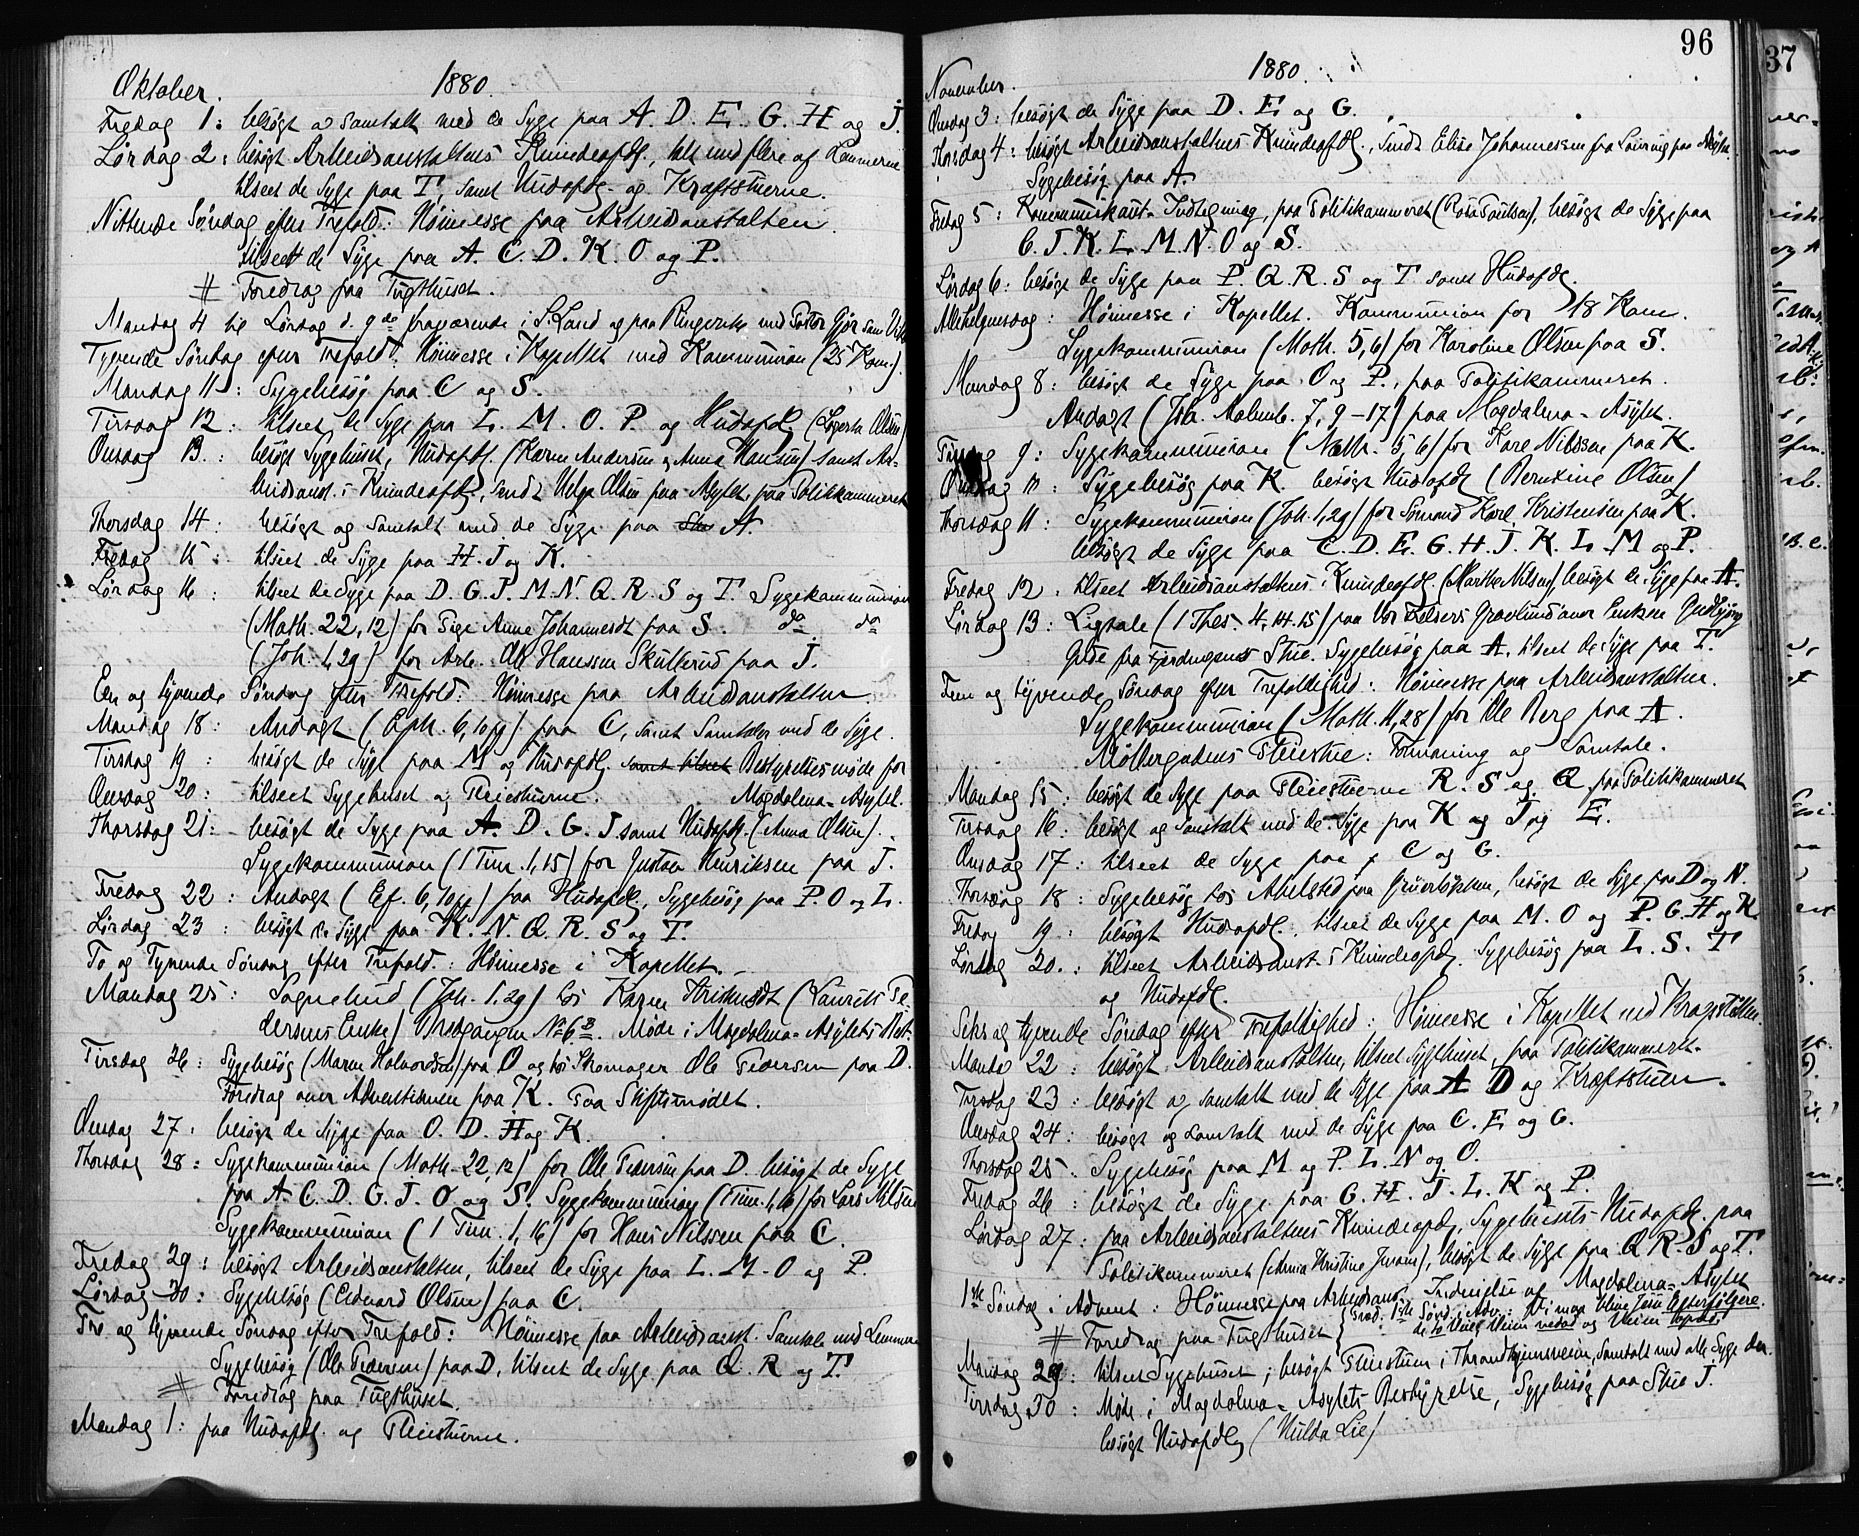 Oktober. 1880.
Fredag 1: besøgt og samtalt med de Syge paa A. D. E. G. H og J.
Lørdag 2: besøgt Arbeidsanstaltens Kvindeafdl., talt med flere af Lemmerne
tilseet de Syge paa T, samt Hudafdl. og Kræftstuerne.
Nittende Søndag efter Trefold.: Høimesse paa Arbeidsanstalten.
tilseet de Syge paa A. C. D. K. O og P.
# Foredrag paa Tugthuset.
Mandag 4 til Lørdag d. 9de fraværende i S. Land og paa Ringerike med Pastor
Tyvende Søndag efter Trefold: Høimesse i Kapellet med Kommunion (25 Kom.)
Mandag 11: Sygebesøg paa C og S.
Tirsdag 12: tilseet de Syge paa L. M. O. P. og Hudafdl. (Olsen)
Onsdag 13.: besøgt Sygehuset, Hudafdl. (Karen Andersen og Anna Hansen) samt Ar-
beidsanst.s Kvindeafdl., sendt Helga Olsen paa Asylet, paa Politikammeret
Thorsdag 14: besøgt og samtalt med de Syge paa A.
Fredag 15: tilseet de Syge paa H. J og K.
Lørdag 16: tilseet de Syge paa D. G. J. M. N. Q. R. S og T. Sygekommunion
(Math. 22,12) for Pige Anne Johannesdt paa S. do do
(Joh. 1,29) for Arb. Ole Hanssen Skullerud paa J.
Een og tyvende Søndag efter Trefold: Høimesse paa Arbeidsanstalten
Mandag 18: Andagt (Eph. 6,10fg) paa C, samt Samtaler med de Syge.
Tirsdag 19: besøgt de Syge paa M og Hudafdl. samt tilseet Bestyrelsesmøde for
Onsdag 20: tilseet Sygehuset og Pleiestuerne. Magdalena-Asylet.
Thorsdag 21: besøgt de Syge paa A. D. G. J samt Hudafdl. (Anna Olsen).
Sygekommunion (1 Tim. 1,15) for Gustav Henriksen paa J.
Fredag 22: Andagt (Ef. 6,10ff) paa Hudafdl., Sygebesøg paa P. O og L.
Lørdag 23: besøgt de Syge paa K. N. Q. R. S og T.
To og Tyvende Søndag efter Trefold.: Høimesse i Kapellet.
Mandag 25: Sognebud (Joh. 1,29) hos Karen Kristensdt (Laurits Pe-
dersens Enke) Bredgangen No 6 B. Møde i Magdalena-Asylets Best.
Tirsdag 26: Sygebesøg (Maren Halvorsen) paa O og hos Skomager Ole Pedersen paa D.
Foredrag over Adventismen paa K. Paa Stiftsmødet.
Onsdag 27: besøgt de Syge paa O. D. H og K.
Thorsdag 28: Sygekommunion (Math. 22,12) for Ole Pedersen paa D. besøgt de Syge
paa A. C. D. G. J. O og S. Sygekommunion (1 Tim. 1,16) for Lars Nilsen
Sygekommunion (1 Tim. 1,16) for Hans Nilssen paa C.
Fredag 29: besøgt Arbeidsanstalten, tilseet de Syge paa L. M. O og P.
Lørdag 30: Sygebesøg (Edvard Olsen) paa C.
Tre og tyvende Søndag efter Trefold: Høimesse paa Arbeidsanst. Samtale med Lemmer
Sygebesøg (Ole Pedersen) paa D. tilseet de Syge paa Q. R og T.
# Foredrag paa Tugthuset.
Mandag 1: paa Hudafdl. og Pleiestuerne.
96
November. 1880.
Onsdag 3: besøgt de Syge paa D. E og G.
Thorsdag 4: besøgt Arbeidsanstaltens Kvindeafdl., sendt Elise Johannessen fra paa Asylet.
Sygebesøg paa A.
Fredag 5: Kommunikant-Indtegning, paa Politikammeret, besøgt de Syge paa
C. J. K. L. M. N. O og S.
Lørdag 6: besøgt de Syge paa P. Q. R. S og T samt Hudafdl.
Allehelgensdag: Høimesse i Kapellet. Kommunion for 18 Kom.
Sygekommunion (Math. 5,6) for Karoline Olsen paa S.
Mandag 8: besøgt de Syge paa O og P., paa Politikammeret.
Andagt (Joh. Aabenb. 7, 9-17) paa Magdalena-Asylet.
Tirsdag 9: Sygekommunion (Math. 5,6) for Kare Nilssen paa K.
Onsdag 10: Sygebesøg paa K. besøgt Hudafdl. (Berntine Olsen)
Thorsdag 11: Sygekommunion (Joh. 1,29) for Sømand Karl Kristensen paa K.
besøgt de Syge paa C. D. E. G. H. J. K. L. M og P.
Fredag 12: tilseet Arbeidsanstaltens Kvindeafdl. (Marthe Nilsen) besøgt de Syge paa A.
Lørdag 13: Ligtale (1 Thes. 4,14.15) paa Vor Frelsers Gravlund over Enken Gudbjørg
Sygebesøg paa A, tilseet de Syge paa T.
Fem og tyvende Søndag efter Trefoldighed: Høimesse paa Arbeidsanstalten.
Sygekommunion (Math. 11,28) for Ole Berg paa A.
Møllergadens Pleiestue: Formaning og Samtale.
Mandag 15: besøgt de Syge paa Pleiestuerne R. S og Q, paa Politikammeret
Tirsdag 16: besøgt og samtalt med de Syge paa K og J og E.
Onsdag 17: tilseet de Syge paa C og G.
Thorsdag 18: Sygebesøg hos Abelsted paa Grünerløkken, besøgt de Syge paa D og N.
Fredag 19: besøgt Hudafdl., tilseet de Syge paa M. O og P. G. H og K.
Lørdag 20.: tilseet Arbeidsanst.s Kvindeafdl. Sygebesøg paa L. S. T
og Hudafdl.
Seks og tyvende Søndag efter Trefoldighed: Høimesse i Kapellet med
Manda 22: besøgt Arbeidsanstalten, tilseet Sygehuset, paa Politikammeret.
Tirsdag 23: besøgt og samtalt med de Syge paa A D og Kræftstuen.
Onsdag 24: besøgt og samtalt med de Syge paa C. E og G.
Thorsdag 25: Sygebesøg paa M og P. L. N og O.
Fredag 26: besøgt de Syge paa G. H. J. L. K og P.
Lørdag 27: paa Arbeidsanstaltens Kvindeafdl., Sygehusets Hudafdl. paa
Politikammeret, besøgt de Syge paa Q R. S og T.
1ste Søndag i Advent: Høimesse paa Arbeidsanst. Indvielse af Magdalena-Asylet
# Foredrag paa Tugthuset
1ste Sønd. i Adv.: Vi maa blive Jesu Efterfølgere.
Mandag 29: tilseet Sygehuset; besøgt Pleiestuen i Throndhjemsveien, samtalt med alle Syge der.
Tirsdag 30: Møde i Magdalena-Asylets Bestyrelse, Sygebesøg paa Stue J.
besøgt Hudafdl. (Hulda Lie)
37